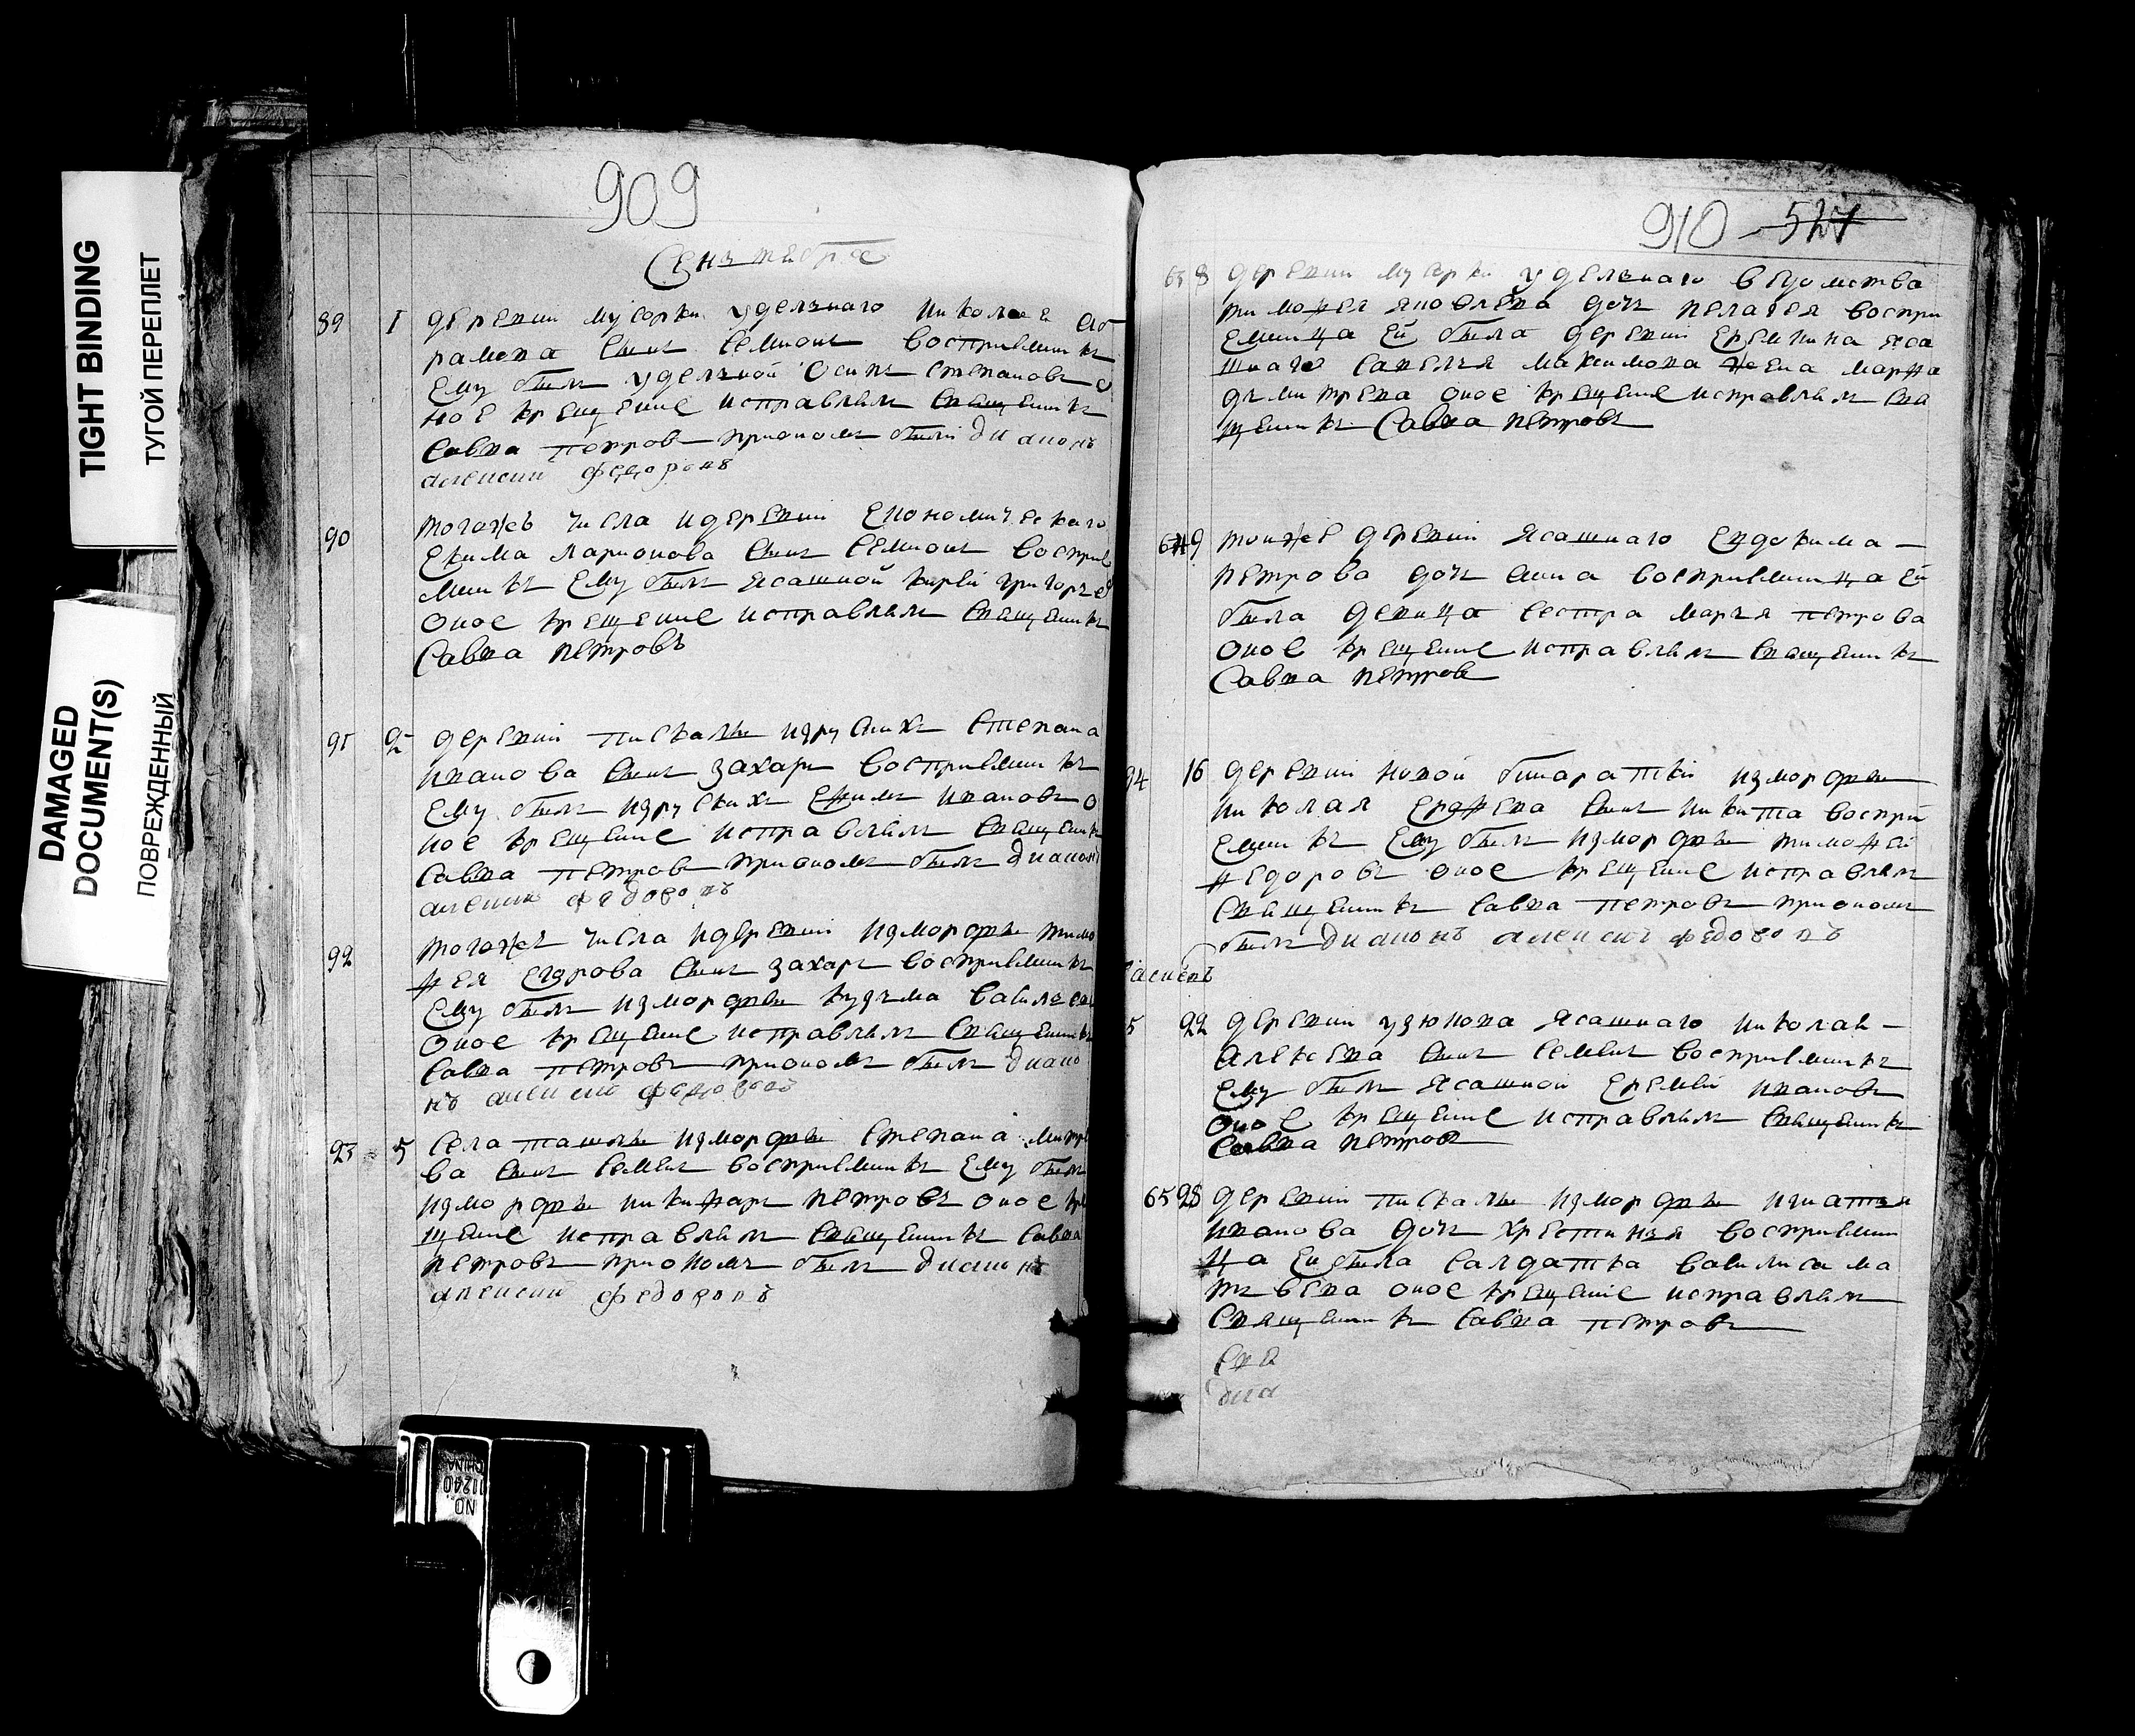 TIGHT BINDING
ТУГОЙ ПЕРЕПЛЕТ
DAMAGED
DOCUMENT(S)
ПОВРЕЖДЕННЫЙ
909
Сеньтебре
89 1 деревни мусорки удельнаго николая аб
рамова сынъ семионъ восприемникъ
ему былъ удельной осипъ степановъ о
ное крещение исправлялъ священникъ
савва петровъ приономъ были диаконъ
алексий федоровъ
90 тогожъ числа идеревни економическаго
екима ларионова сынъ семионъ воспріе
мникъ ему былъ ясашной григорье
оное крещение исправлялъ священникъ
савва петровъ
91 2 деревни пискалы издрускихъ степана
иванова сынъ захаръ восприемникъ
ему былъ издрускихъ ефимъ ивановъ о
ное крещение исправлялъ священникъ
савва петровъ приономъ былъ диаконъ
алексии федоровъ
92 тогожъ числа идеревни измордвы тимо
фея егорова сынъ захаръ восприемникъ
ему былъ измордвы кузьма
оное крещение исправлялъ священникъ
савва петровъ приономъ былъ диако
нъ алексий федоровъ
93 5 села ташлы измордвы степана
ва сынъ семенъ восприемникъ ему былъ
измордвы никифаръ петровъ оное кре
щение исправлялъ священникъ савва
петровъ приономъ былъ диаконъ
алексии федоровъ
910 527
63 8 деревни мусорки удельнаго ведомства
тимофея яковлева дочь пелагея воспри
емница ей была деревни еремкина яса
шнаго савелья максимова жена марфа
дьмитрева оное крещение исправлялъ свя
щенникъ савва петровъ
64 9 тойже деревни ясашнаго евдокима
петрова дочь анна восприемница ей
была девица сестра марья петрова
оное крещение исправлялъ священникъ
савва петровъ
94 16 деревни новой бинаратки измордвы
николая ерофева сынъ никита воспри
емникъ ему былъ измордвы тимофей
федоровъ оное крещение исправлялъ
священникъ савва петровъ приономъ
былъ диаконъ алексий федоровъ
5 22 деревни узюкова ясашнаго николая
алексева сынъ семенъ восприемникъ
ему былъ ясашной еремей ивановъ
оное крещение исправлялъ священникъ
савва петровъ
65 28 деревни пискалы измордвы игнатья
иванова дочь христинья восприемни
ца ей была салдатка василиса ма
твева оное крещение исправлялъ
священникъ савва петровъ
свя
диа